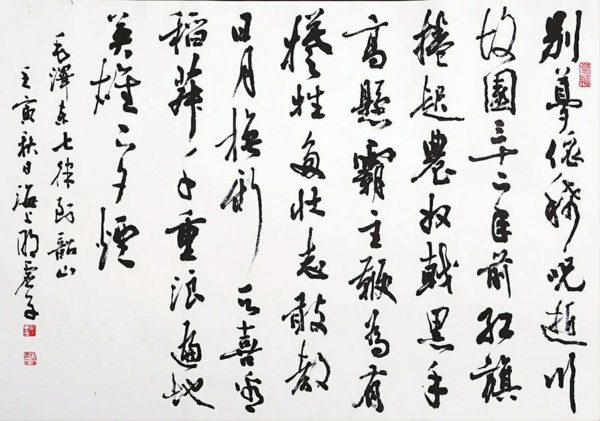 别夢依稀咒逝川
故園三十二年前紅旗
捲起農奴戟黑手
高懸霸主鞭為有
犧牲多壯志敢教
日月換新天喜看
稻菽千重浪遍地
英雄下夕煙
毛澤东七律到韶山
壬寅秋日海上